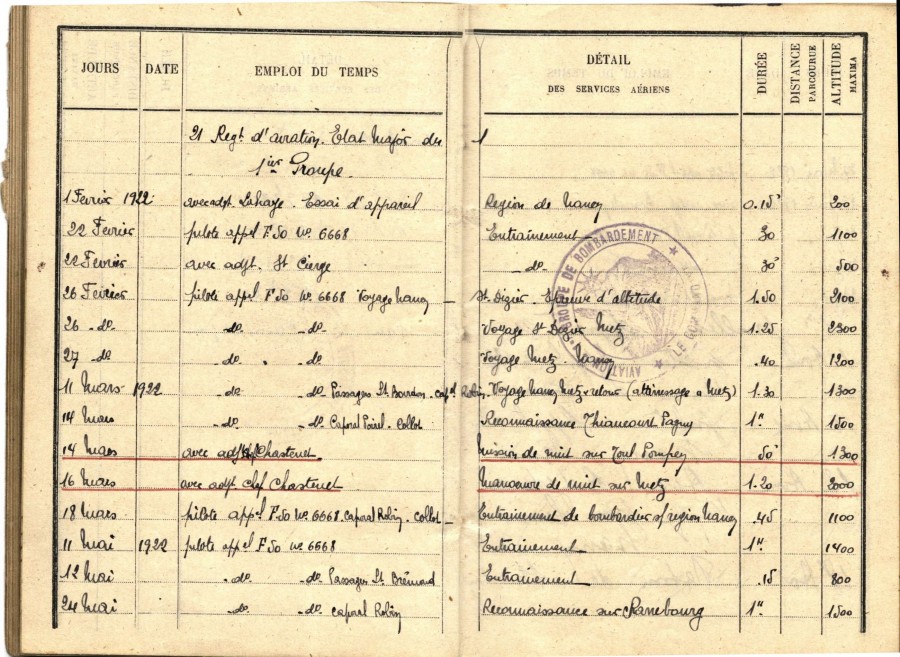 JOURS DATE EMPLOI DU TEMPS DÉTAIL DES SERVICES AÉRIENS DURÉE DISTANCE PARCOURUE ALTITUDE MAXIMA
21 Regt. d'aviation. Etat Major du 1
1ier Groupe.
1 Fevrier 1922. avec adjt. Lahaye. Essai d'appareil Region de Nancy 0.15' 200
22 Fevrier pilote appel F 50 No. 6668 Entrainement 30 1100
22 Fevrier avec adjt. St Cierge _do_ 30' 500
26 Fevrier pilote appel F 50 No. 6668 Voyage Nancy _ St. Dizier. Epreuve d'altitude 1.50 2100
26 _do_ _do_ _do_ Voyage St Dizier Metz 1.25 2300
27 _do_ _do_ _do_ Voyage Metz. Nancy .40 1200
11 Mars 1922 _do_ _do_ Passagers Lt. Bourdon. Robin. Voyage Nancy Metz + retour (atterissage a Metz) 1.30 1300
14 Mars _do_ _do_ Caporal Collot Reconnaissance Thiaucourt Pagny 1h 1500
14 Mars avec adjt chef Chastenet. Mission de nuit sur Toul Pompey 50' 1300
16 Mars avec adjt chef Chastenet Manoeuvre de nuit sur Metz 1.20 2000
18 Mars pilote appel F 50 No. 6668 Caporal Robin. Collot _ Entrainement de bombardier s/ region Nancy .45 1100
11 Mai 1922 pilote appel F 50 No 6668 Entrainement 1h 1400
12 Mai _do_ _do_ Passagers Lt. Brémond Entrainement .15 800
24 Mai _do_ _do_ caporal Robin Reconnaissance sur Sarrebourg 1h 1500
GROUPE DE BOMBARDEMENT
AVIATION